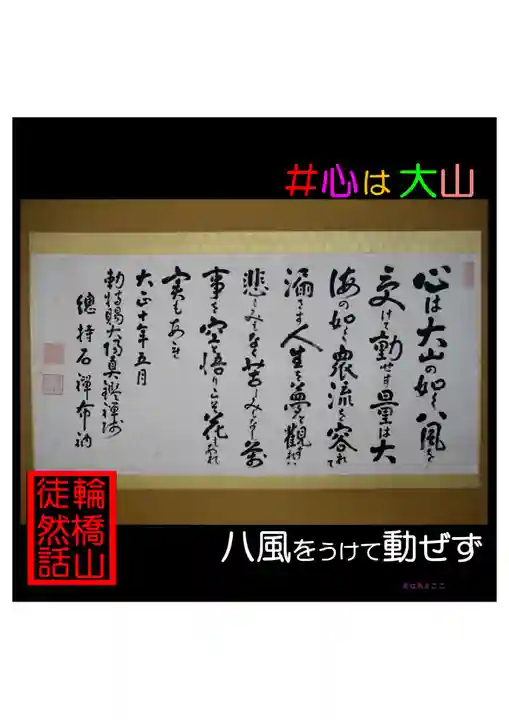 #心は大山
心は大山の如く八風を
受けて動せす量は大
海の如く衆流を容れて
溺さす人生を夢と観すれは
悲しみもなく苦しみもなし万
事を空と悟りてこそ花もあれ
実もあれ
大正十年五月
勅特賜大円真鑑禅師
總持石禅布衲
輪橋山
徒然話
八風をうけて動ぜず